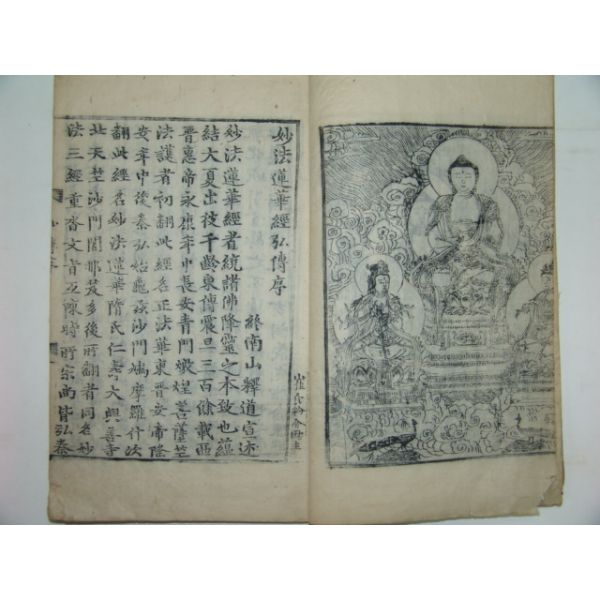 妙法蓮華經弘傳序
終南山釋道宣述
妙法蓮華經者統諸佛降靈之本致也蘊
結大夏出彼千齡東傳震旦三百餘載西
晉惠帝永康年中長安青門燉煌菩薩竺
法護者初翻此經名正法華東晉安帝隆
安年中後秦弘始龜茲沙門鳩摩羅什次
翻此經名妙法蓮華隋氏仁壽大興善寺
北天竺沙門闍那笈多後所翻者同名妙
法三經重沓文旨互陳時所宗尚皆弘秦
崔氏